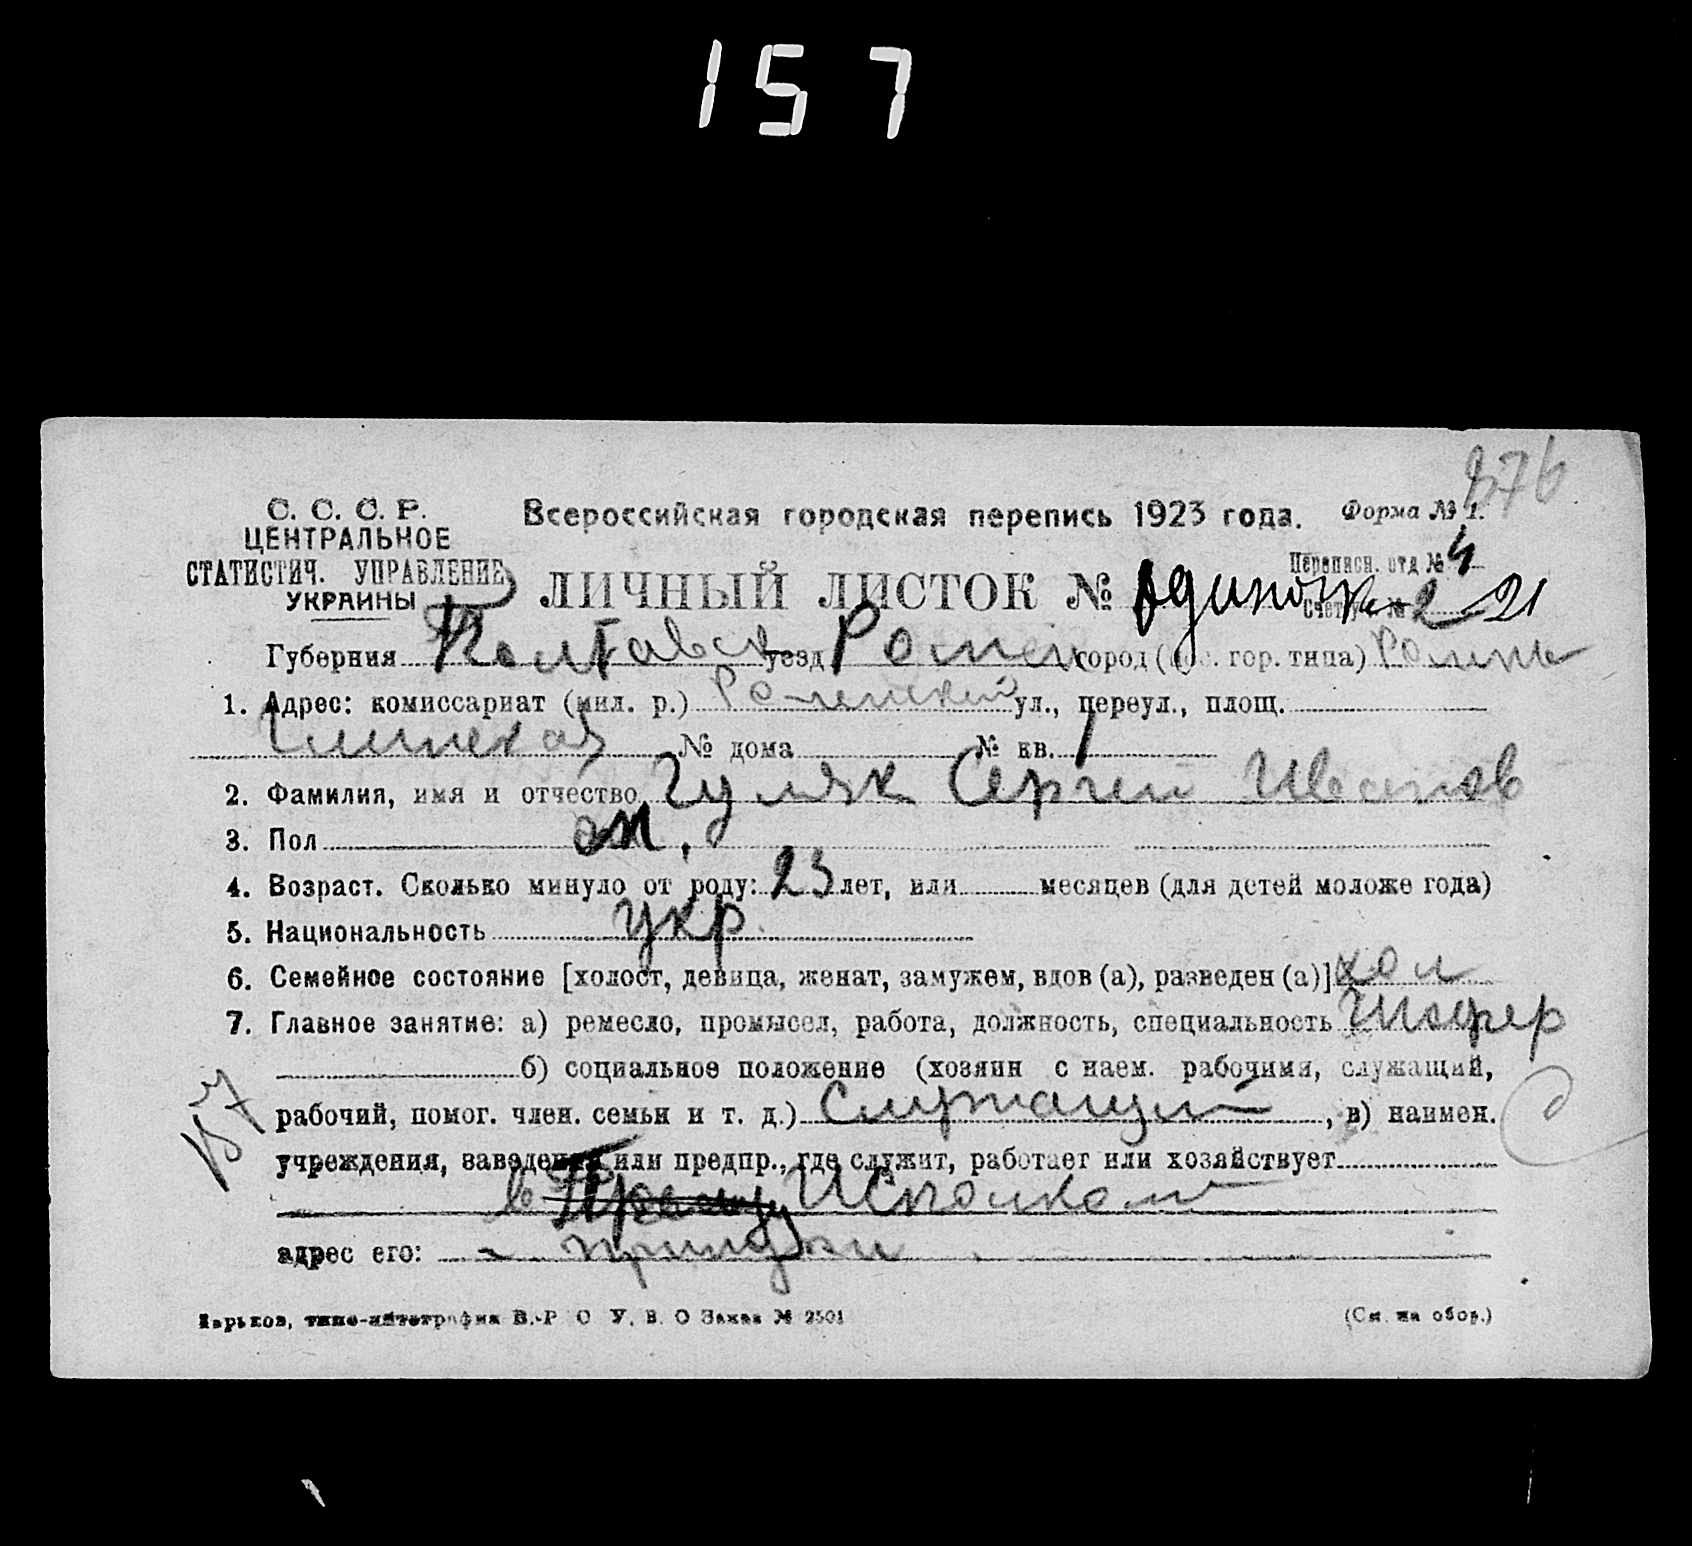 157
376
С. С. С. Р.
ЦЕНТРАЛЬНОЕ
СТАТИСТИЧ. УПРАВЛЕНИЕ
УКРАИНЫ
Всероссийская городская перепись 1923 года.
Форма № 1.
Переписн. отд № 4
ЛИЧНЫЙ ЛИСТОК № Одинок
Счетч. № 2 21
Губерния Полтавск уезд Ромен город (пос. гор. типа) Ромны
1. Адрес: комиссариат (мил. р.) Роменский ул., переул., площ.
№ дома № кв. 1
2. Фамилия, имя и отчество Гуляк Сергей Иванов
3. Пол м.
4. Возраст. Сколько минуло от роду: 23 лет, или месяцев (для детей моложе года)
5. Национальность укр.
6. Семейное состояние [холост, девица, женат, замужем, вдов (а), разведен (а)] хол
7. Главное занятие: а) ремесло, промысел, работа, должность, специальность Шофер
б) социальное положение (хозяин с наем. рабочими, служащий,
рабочий, помог. член. семьи и т. д.) Служащий, в) наимен.
учреждения, заведения или предпр., где служит, работает или хозяйствует
в Исполком
адрес его: Прилуки
Харьков, типо-литография В.-Р О У. В. О Заказ № 2501
(См. на обор.)